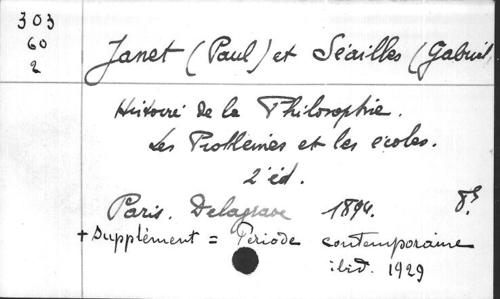 303
60
2
Janet (Paul) et Séailles (Gabriel)
Histoire de la Philosophie.
Les Problèmes et les écoles.
2 éd.
Paris. Delagrave 1894. 8°
+ Supplément = Période contemporaine
ibid. 1929